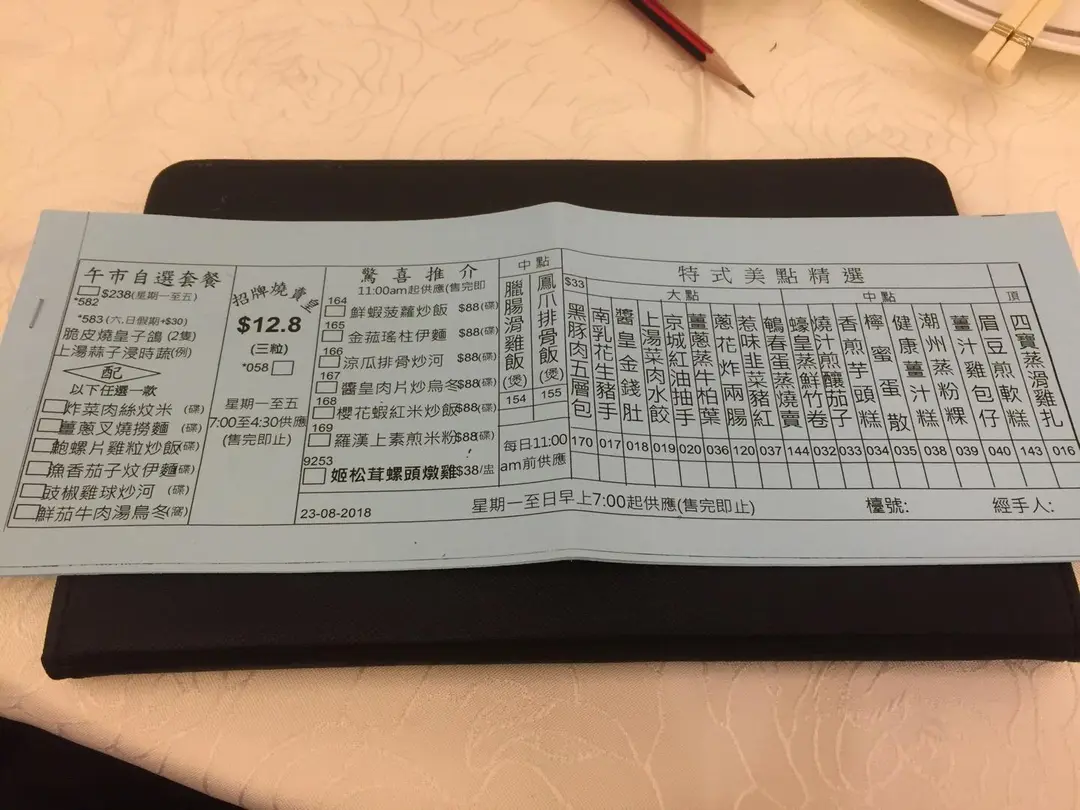 午市自選套餐
$238(星期一至五)
*582
*583 (六.日假期+$30)
脆皮燒皇子鴿 (2隻)
上湯蒜子浸時蔬(例)
配
以下任選一款
炸菜肉絲炆米 (碟)
薑蔥叉燒撈麵 (碟)
鮑螺片雞粒炒飯(碟)
漁香茄子炆伊麵(碟)
豉椒雞球炒河 (碟)
鮮茄牛肉湯烏冬(窩)
招牌燒賣皇
$12.8
(三粒)
*058
星期一至五
7:00至4:30供應
(售完即止)
驚喜推介
11:00am起供應(售完即
164
鮮蝦菠蘿炒飯 $88(碟)
165
金菇瑤柱伊麵 $88(碟)
166
涼瓜排骨炒河 $88(碟)
167
醬皇肉片炒烏冬$88(碟)
168
櫻花蝦紅米炒飯$88(碟)
169
羅漢上素煎米粉$88(碟)
9253
姬松茸螺頭燉雞$38/盅
23-08-2018
中點
臘腸滑雞飯(煲)
154
鳳爪排骨飯(煲)
155
每日11:00
am前供應
特式美點精選
$33
大點
中點
頂
黑豚肉五層包
170
南乳花生豬手
017
醬皇金錢肚
018
上湯菜肉水餃
019
京城紅油抽手
020
薑蔥蒸牛柏葉
036
蔥花炸兩腸
120
惹味韭菜豬紅
037
鵪春蛋蒸燒賣
144
蠔皇蒸鮮竹卷
032
燒汁煎釀茄子
033
香煎芋頭糕
034
檸蜜蛋散
035
健康薑汁糕
038
潮州蒸粉粿
039
薑汁雞包仔
040
眉豆煎軟糕
143
四寶蒸滑雞扎
016
星期一至日早上7:00起供應(售完即止)
檯號:
經手人: